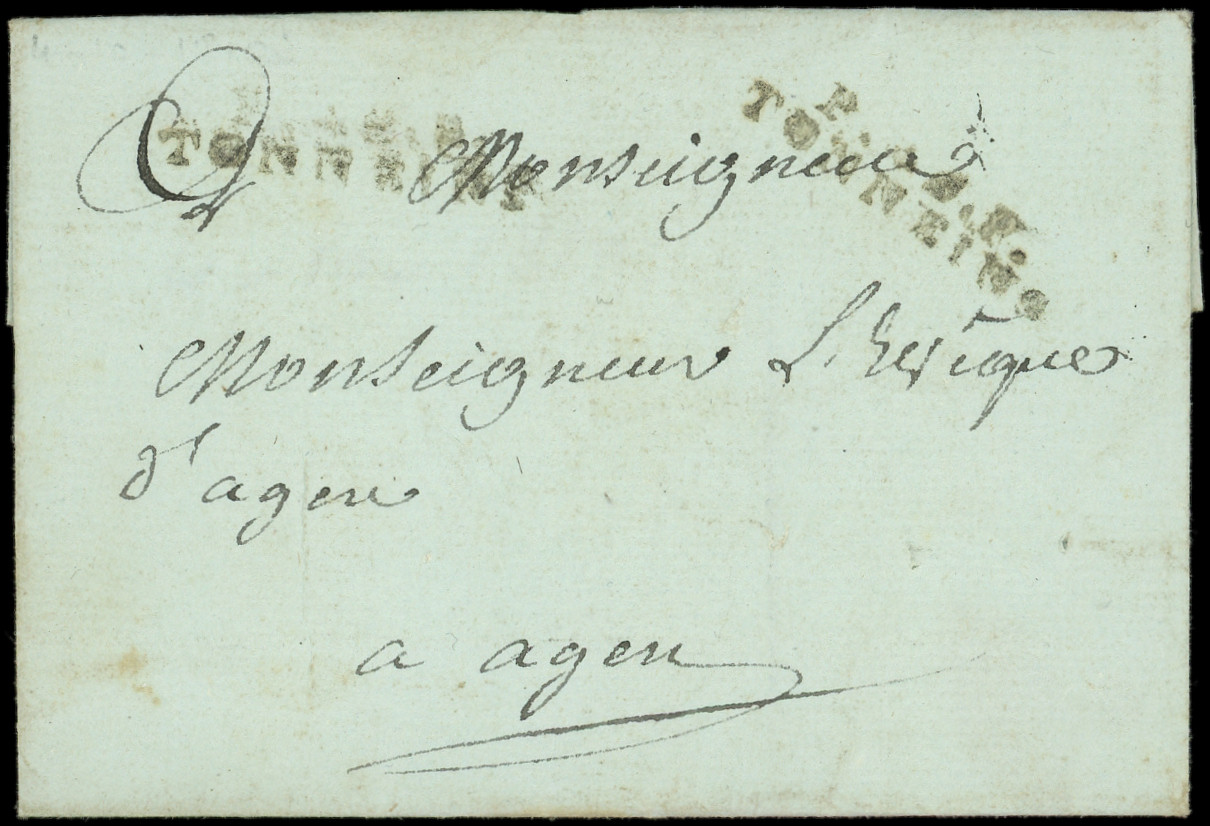 TONNEINS
P. 45. P.
TONNEINS
Monseigneur
Monseigneur L'Evêque
d'agen
a agen